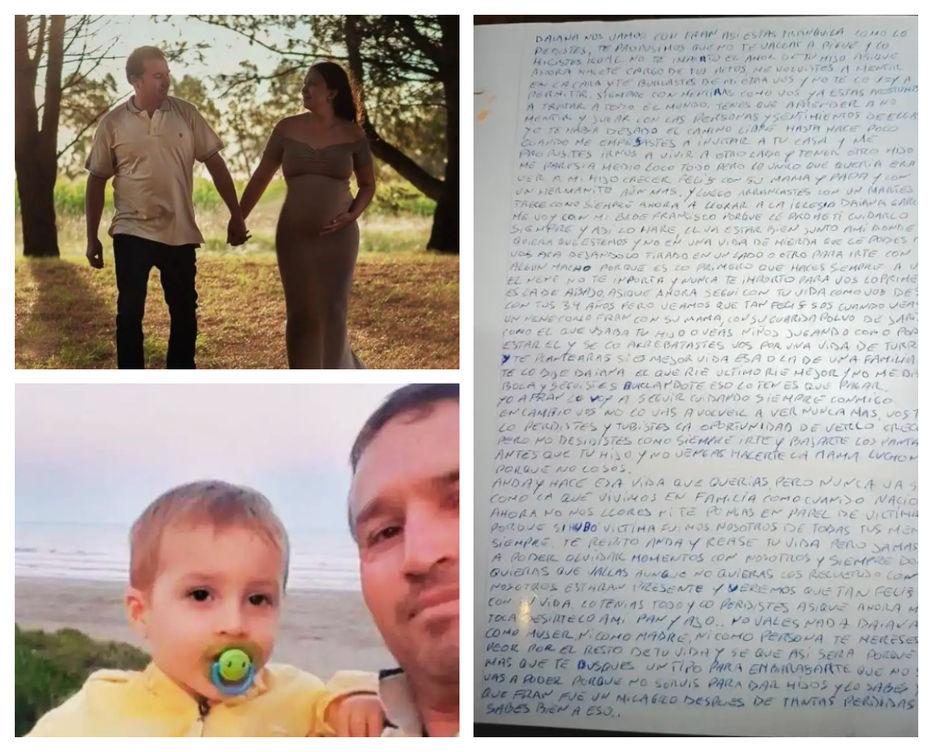 DAIANA NOS VAMOS CON FRAN ASI ESTAS TRANQUILA COMO LO
PEDISTES, TE PROPUSIMOS QUE NO TE VALLAS A PIQUE Y LO
HICISTES IGUAL NO TE IMPORTO EL AMOR DE TU HIJO ASIQUE
AHORA HACETE CARGO DE TUS ACTOS ME VOLVISTES A MENTIR
EN LA CARA Y TE BURLASTES DE MI OTRA VOS Y NO TE LO VOY A
PERMITIR SIEMPRE CON MENTIRAS COMO VOS YA ESTAS
A TRATAR A TODO EL MUNDO. TENES QUE APRENDER A NO
MENTIR Y JUGAR CON LAS PERSONAS Y SENTIMIENTOS DE ELLAS
YO TE HABIA DEJADO EL CAMINO LIBRE HASTA HACE POCO
CUANDO ME EMPESASTES A INVITAR A TU CASA Y ME
PROPUSISTES IRNOS A VIVIR A OTRO LADO Y TENER OTRO HIJO
ME PARESIA MEDIO LOCO TODO PERO LO UNICO QUE QUERIA ERA
VER A MI HIJO CRECER FELIS CON SU MAMA Y PAPA Y CON
UN HERMANITO AUN MAS, Y LUEGO ARRANCASTES CON UN MARTES
COMO SIEMPRE AHORA A LLORAR A LA IGLESIA DAIANA
ME VOY CON MI BEBE FRANCISCO PORQUE LE PROMETI CUIDARLO
SIEMPRE Y ASI LO HARE, EL VA ESTAR BIEN JUNTO AMI DONDE
QUIERA QUE ESTEMOS Y NO EN UNA VIDA DE MIERDA QUE LE PODES
VOS ACA DEJANDOLO TIRADO EN UN LADO O OTRO PARA IRTE CON
ALGUN MACHO PORQUE ES LO PRIMERO QUE HACES SIEMPRE A
EL NENE NO TE INPORTA Y NUNCA TE IMPORTO PARA VOS LO PRIME
ES LA DE ABAJO, ASIQUE AHORA SEGUI CON TU VIDA COMO VOS
CON TUS 34 AÑOS PERO VEAMOS QUE TAN FELIS SOS CUANDO VEAS
UN NENE COMO FRAN CON SU MAMA, CON SU GUARDAPOLVO DE JARD
COMO EL QUE USABA TU HIJO O VEAS NIÑOS JUGANDO COMO POD
ESTAR EL Y SE LO ARREBATASTES VOS POR UNA VIDA DE TURR
Y TE PLANTEARAS SI ES MEJOR VIDA ESA O LA DE UNA FAMILIA.
TE LO DIJE DAIANA EL QUE RIE ULTIMO RIE MEJOR Y NO ME DIS
BOLA Y SEGUISTES BURLANDOTE ESO LO TENES QUE PAGAR.
YO A FRAN LO VOY A SEGUIR CUIDANDO SIEMPRE CONMIGO.
EN CAMBIO VOS NO LO VAS A VOLVER A VER NUNCA MAS, VOS
LO PERDISTES Y TUBISTES LA OPORTUNIDAD DE VERLO CRECE
PERO NO DESIDISTES COMO SIEMPRE IRTE Y BAJARTE LOS PANTA
ANTES QUE TU HIJO Y NO VENGAS HACERTE LA MAMA LUCHON
PORQUE NO LO SOS.
ANDA Y HACE ESA VIDA QUE QUERIAS PERO NUNCA VA S
COMO LA QUE VIVIMOS EN FAMILIA COMO CUANDO NACIO
AHORA NO NOS LLORES NI TE PONGAS EN PAPEL DE VICTIM
PORQUE SI HUBO VICTIMA FUIMOS NOSOTROS DE TODAS TUS MEN
SIEMPRE. TE REPITO ANDA Y REASE TU VIDA PERO JAMAS
A PODER OLVIDAR MOMENTOS CON NOSOTROS Y SIEMPRE DO
QUIERAS QUE VALLAS AUNQUE NO QUIERAS LOS RECUERDO CON
NOSOTROS ESTARAN PRESENTE Y VEREMOS QUE TAN FELIS
CON TU VIDA. LO TENIAS TODO Y LO PERDISTES ASIQUE AHORA M
TOCA DESIRTELO AMI PAN Y AJO.. NO VALES NADA DAIANA
COMO MUJER, NI COMO MADRE, NI COMO PERSONA TE MERESES
PEOR POR EL RESTO DE TU VIDA Y SE QUE ASI SERA PORQUE
MAS QUE TE BUSQUES UN TIPO PARA EMBARASARTE QUE NO
VAS A PODER PORQUE NO SERVIS PARA DAR HIJOS Y LO SABES
QUE FRAN FUE UN MILAGRO DESPUES DE TANTAS PERDIDAS
SABES BIEN A ESO..